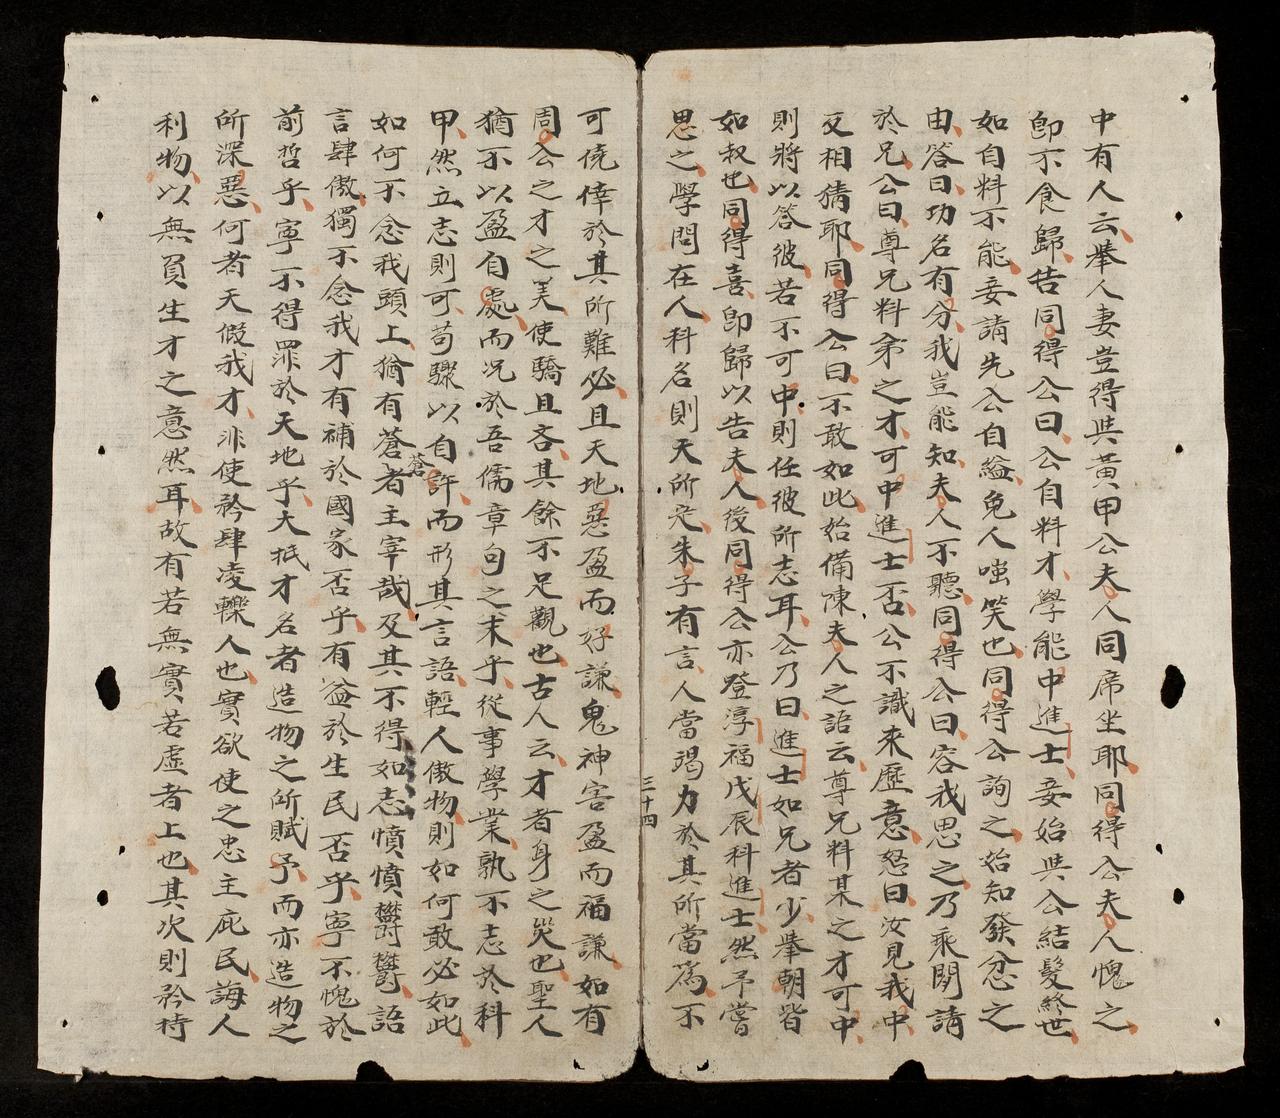 中有人云舉人妻豈得与黃甲公夫人同席坐耶同得公夫人愧之
卽不食歸告同得公曰公自料才學能中進士妾始与公結髮終世
如自料不能妾請先公自縊免人嗤笑也同得公詢之始知發忿之
由答曰功名有分我豈能知夫人不聽同得公曰容我思之乃乘間請
於兄公曰尊兄料弟之才可中進士否公不識來歷意怒曰汝見我中
反相猜耶同得公曰不敢如此始備陳夫人之詒云尊兄料某之才可中
則將以答彼若不可中則任彼所志耳公乃曰進士如兄者少舉朝皆
如叔也同得喜卽歸以告夫人後同得公亦登淳福戊辰科進士然予嘗
思之學問在人科名則天所定朱子有言人當竭力於其所當爲不
三十四
可僥倖於其所難必且天地惡盈而好謙鬼神害盈而福謙如有
周公之才之美使驕且吝其餘不足觀也古人云才者身之災也聖人
猶不以盈自處而况於吾儒章句之末乎從事學業孰不志於科
甲然立志則可苟驟以自許而形其言語輕人傲物則如何敢必如此
如何不念我頭上猶有蒼蒼者主宰哉及其不得如志憤憤欝欝語
言肆傲獨不念我才有補於國家否乎有益於生民否乎寧不愧於
前哲乎寧不得罪於天地乎大抵才名者造物之所賦予而亦造物之
所深惡何者天假我才非使矜肆凌轢人也實欲使之忠主庇民誨人
利物以無負生才之意然耳故有若無實若虛者上也其次則矜持